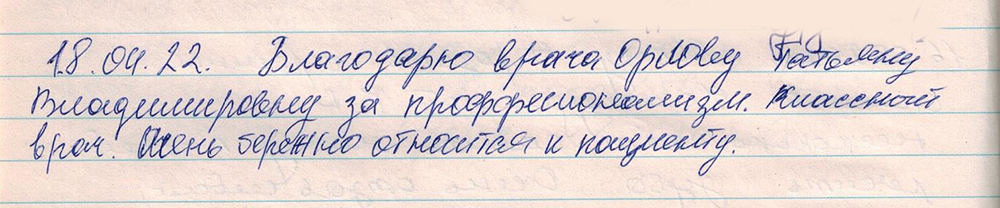 18.04.22. Благодарю врача Орлову Татьяну
Владимировну за проффесионализм. Классный
врач. Очень бережно относится к пациенту.